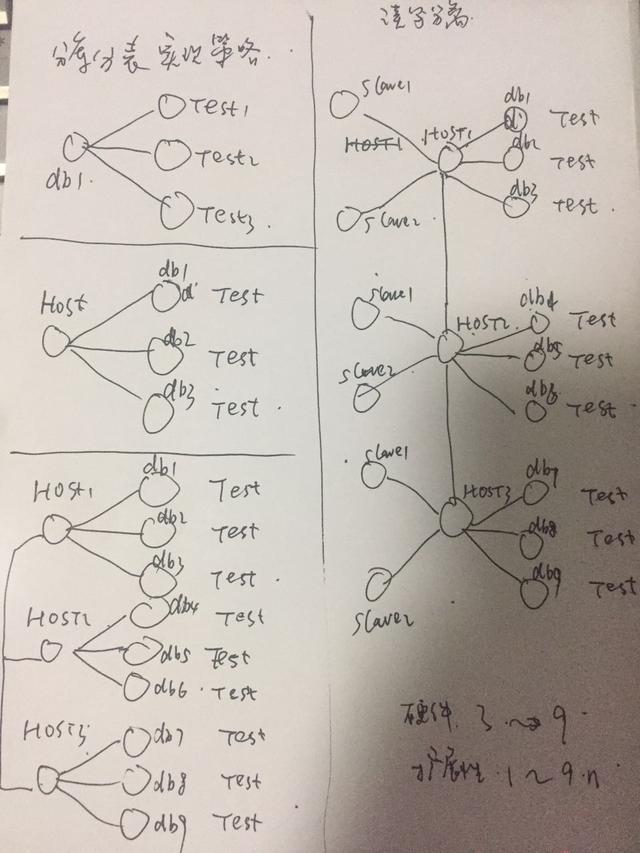 分库分表 实现策略.
db1.
Test1
Test2
Test3.
Host
db1
Test
db2
Test
db3
Test.
HOST1
db1
Test
db2
Test
db3
Test.
HOST2
db4
Test
db5
Test
db6.
Test
HOST3
db7
Test
db8
Test
db9
Test
读写分离.
slave1
HOST1
HOST1
slave2
db1
Test
db2
Test
db3
Test.
slave1
HOST2.
slave2
db4
Test
db5
Test
db6
Test.
slave1
HOST3
slave2
db7
Test
db8
Test
db9
Test
硬件. 3 ~ 9
扩展性. 1 ~ 9.n